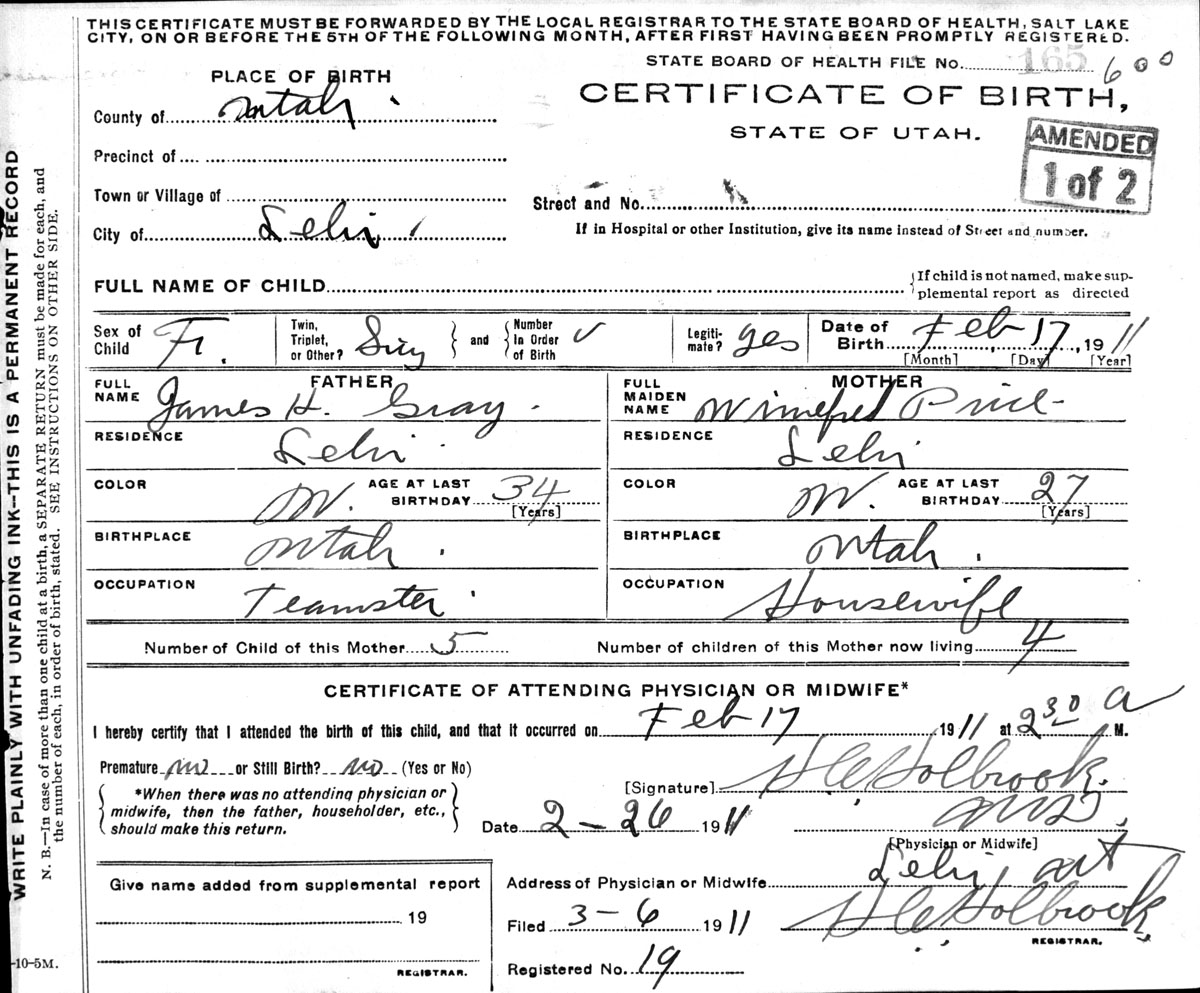 THIS CERTIFICATE MUST BE FORWARDED BY THE LOCAL REGISTRAR TO THE STATE BOARD OF HEALTH, SALT LAKE
CITY, ON OR BEFORE THE 5TH OF THE FOLLOWING MONTH, AFTER FIRST HAVING BEEN PROMPTLY REGISTERED.
STATE BOARD OF HEALTH FILE No. 165 600
PLACE OF BIRTH
CERTIFICATE OF BIRTH,
STATE OF UTAH.
AMENDED
1 of 2
County of Utah
Precinct of
Town or Village of
Street and No.
City of Lehi
If in Hospital or other Institution, give its name instead of Street and number.
FULL NAME OF CHILD
{If child is not named, make sup-
plemental report as directed
Sex of Child F. Twin, Triplet, or Other? Sing and Number In Order of Birth Legiti-mate? yes Date of Birth Feb 17, 1911
[Month] [Day] [Year]
FATHER
FULL NAME James H. Gray
MOTHER
FULL MAIDEN NAME Winefred Price
RESIDENCE Lehi
RESIDENCE Lehi
COLOR W. AGE AT LAST BIRTHDAY 34 [Years]
COLOR W. AGE AT LAST BIRTHDAY 27 [Years]
BIRTHPLACE Utah
BIRTHPLACE Utah
OCCUPATION Teamster
OCCUPATION Housewife
Number of Child of this Mother 5 Number of children of this Mother now living 4
CERTIFICATE OF ATTENDING PHYSICIAN OR MIDWIFE*
I hereby certify that I attended the birth of this child, and that it occurred on Feb 17 1911 at 2 30 a M.
Premature no or Still Birth? no (Yes or No)
[Signature] Holbrook
*When there was no attending physician or
midwife, then the father, householder, etc.,
should make this return.
Date 2-26 1911
[Physician or Midwife]
Give name added from supplemental report
19
REGISTRAR.
Address of Physician or Midwife Lehi, Ut
Filed 3-6 1911 Holbrook
REGISTRAR.
Registered No. 19
WRITE PLAINLY WITH UNFADING INK—THIS IS A PERMANENT RECORD
N. B.—In case of more than one child at a birth, a SEPARATE RETURN must be made for each, and
the number of each, in order of birth, stated. SEE INSTRUCTIONS ON OTHER SIDE.
-10-5M.